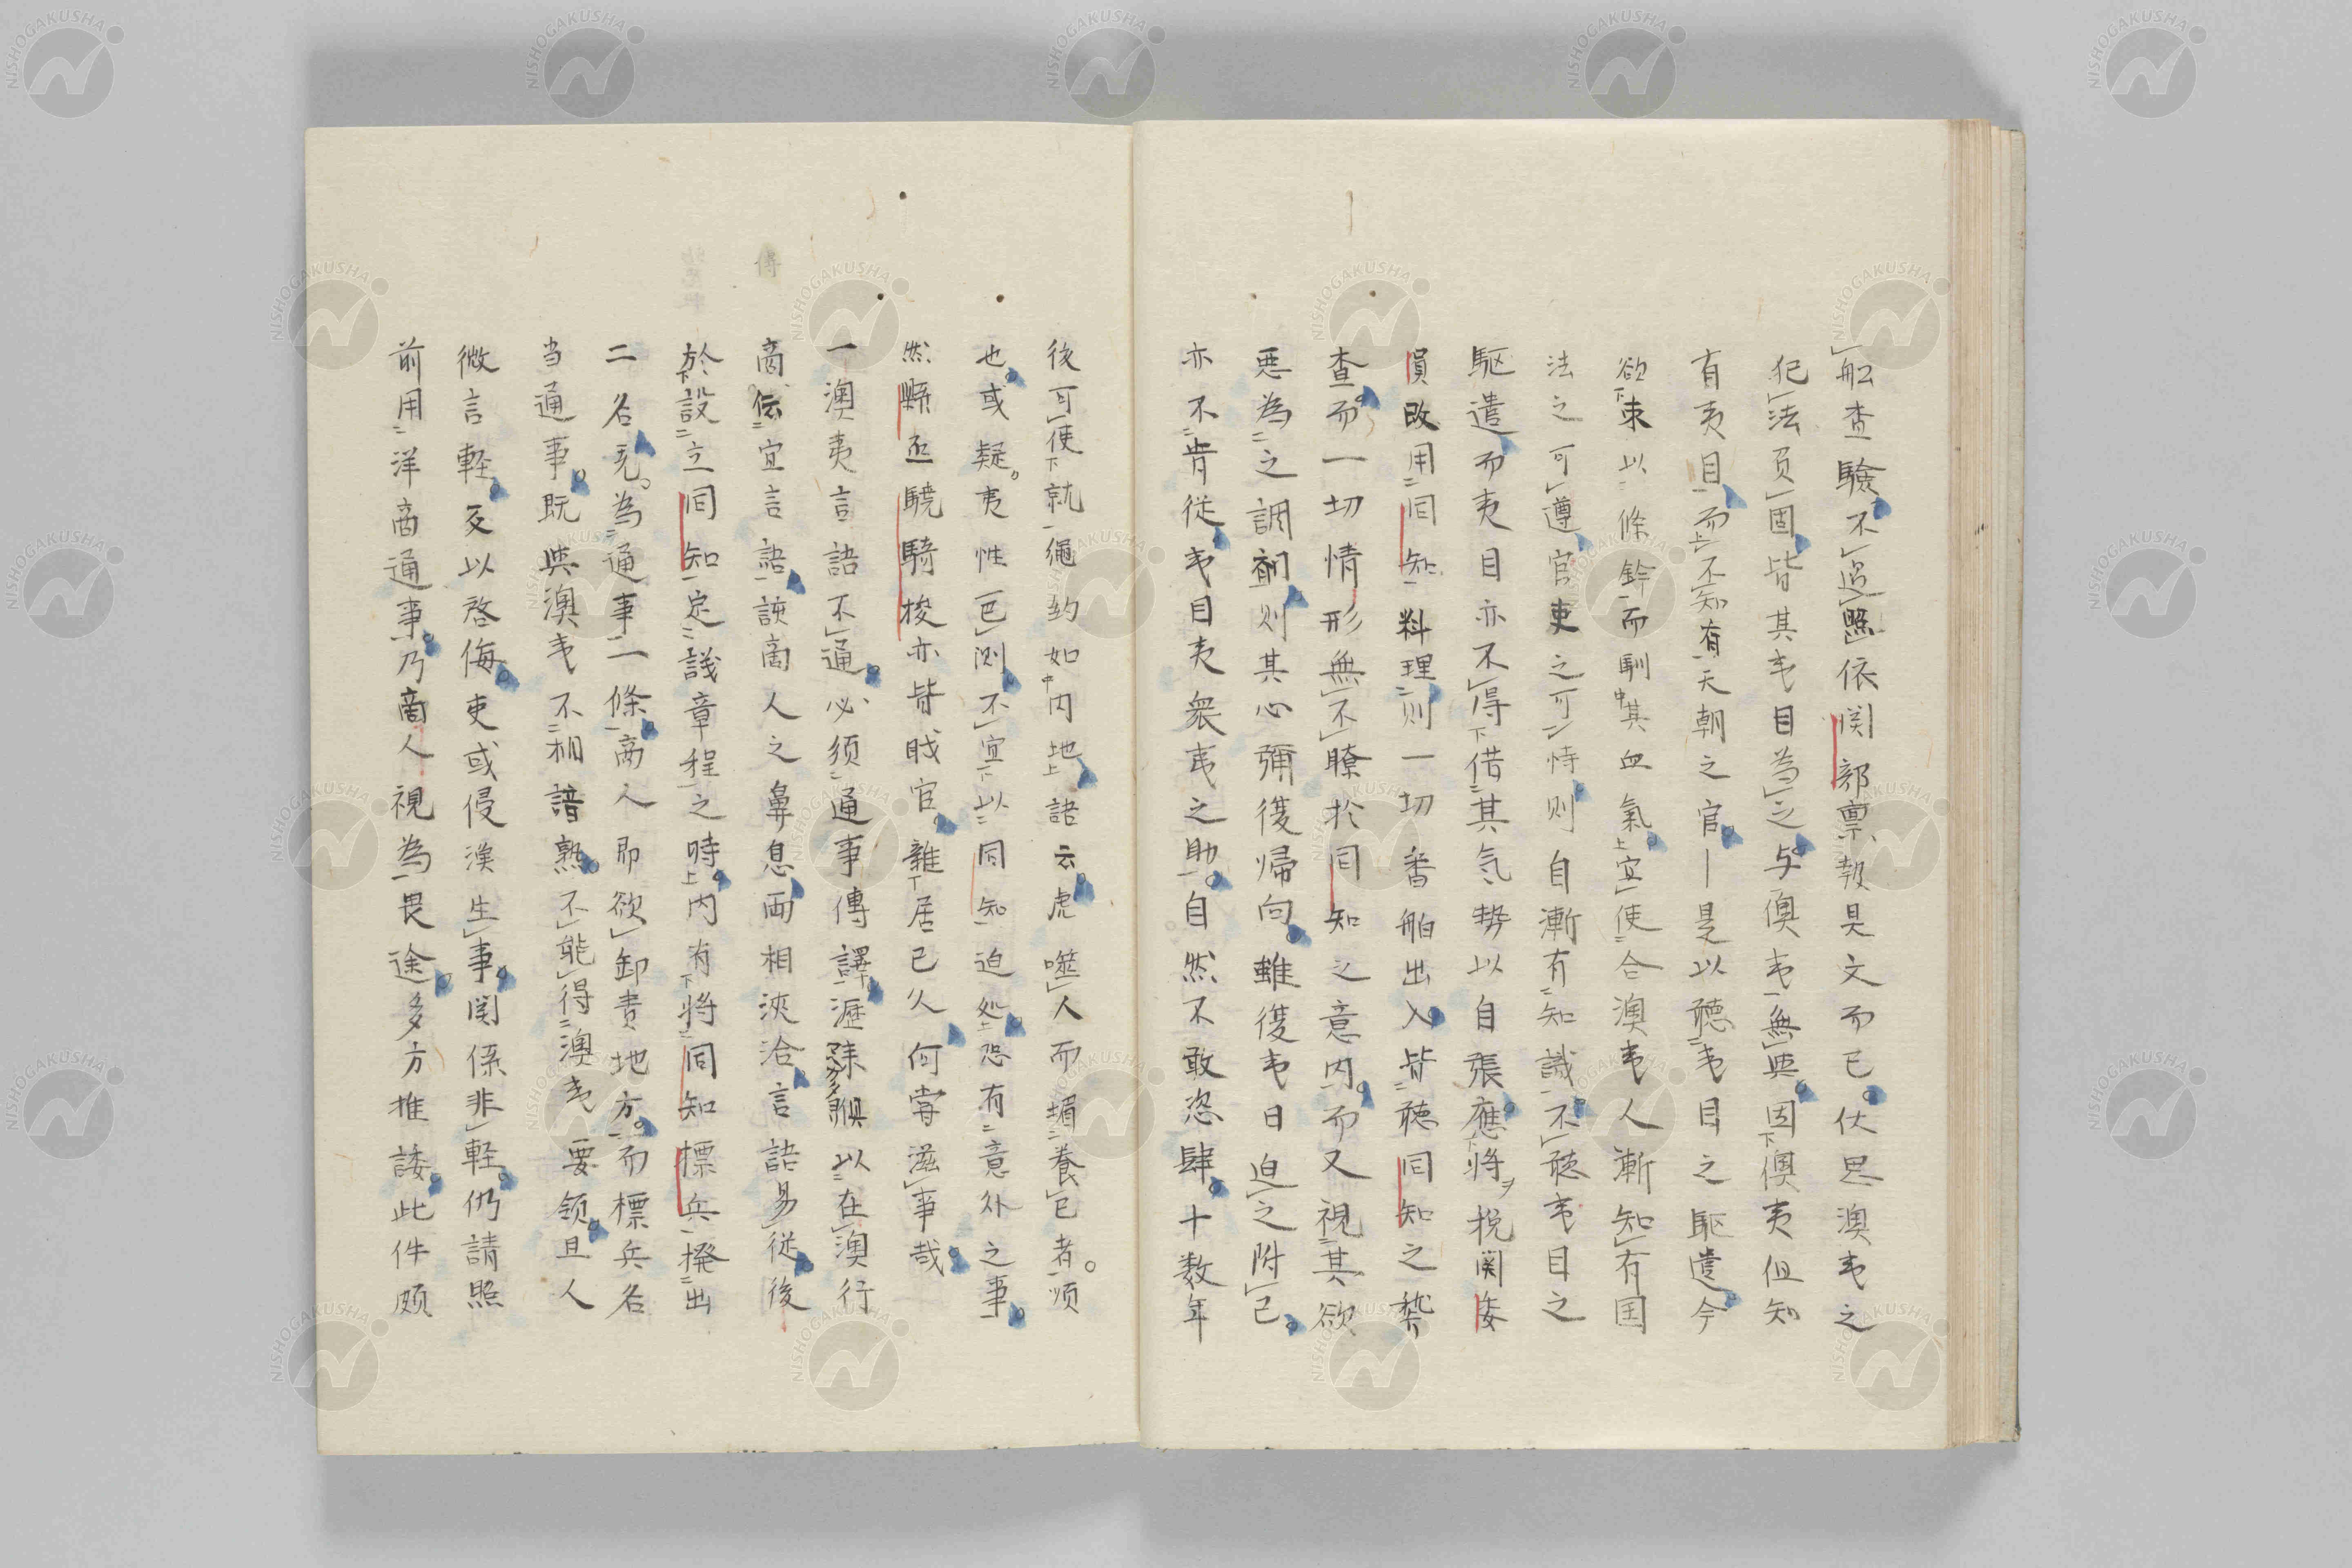 船査驗不過照依関部禀報具文而已伏思澳夷之
犯法貟固皆其夷目為之与澳夷無與因澳夷但知
有夷目而不知有天朝之官一是以聴夷目之駆遣今
欲束以條鈐而馴其血氣宜使合澳夷人漸知有国
法之可遵官吏之可恃則自漸有知識不聴夷目之
駆遣而夷目亦不得借其気勢以自張應将税関委
員改用同知料理則一切番舶出入皆聴同知之稽
査而一切情形無不瞭於同知之意内而又視其欲
悪為之調剤則其心彌復帰向雖復夷日迫之附已
亦不肯従夷目夷衆夷之助自然不敢恣肆十数年
後可使就繩約如内地語云虎噬人而媚養已者順
也或疑夷性叵測不宜以同知迫処恐有意外之事
然縣丞驍騎梭亦皆戝官雜居已久何嘗滋事哉
一澳夷言語不通必須通事傳譯瀝来類以在澳行
商伝宜言語該商人之鼻息両相浹洽言語易従後
於設立同知定議章程之時内有将同知標兵撥出
二名充為通事一條商人即欲卸責地方而標兵名
当通事既與澳夷不相諳熟不能得澳夷要領且人
微言軽反以啓侮吏或侵漁生事関係非軽仍請照
前用洋商通事乃商人視為畏途多方推諉此件頗
傳
NISHOGAKUSHA